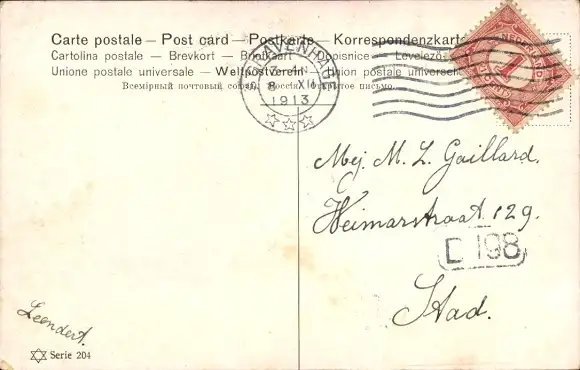 Carte postale — Post card — Postkarte — Korrespondenzkarte
Cartolina postale — Brevkort — Levelező-
Unione postale universale — Weltpostverein — Union postale universelle
Всемірный почтовый Россія письмо.
'S GRAVENHAGE
8 XII
1913
NEDERLAND
1
Mej. M. L. Gaillard.
Weimarstraat 129.
D 198
Stad.
Leendert.
Serie 204